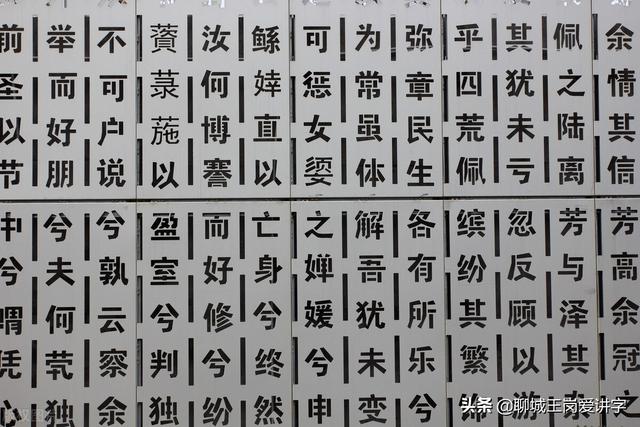 余情其信芳高余冠之
佩之陆离芳与泽其
其犹未亏忽反顾以游
乎四荒佩缤纷其繁饰
弥章民生各有所乐兮
为常虽体解吾犹未变
可惩女嬃之婵媛兮申
鲧婞直以亡身兮终然
汝何博謇而好修兮纷
薋菉葹以盈室兮判独
不可户说兮孰云察余
举而好朋兮夫何茕独
前圣以节中兮喟凭心
头条 @聊城王岗爱讲字